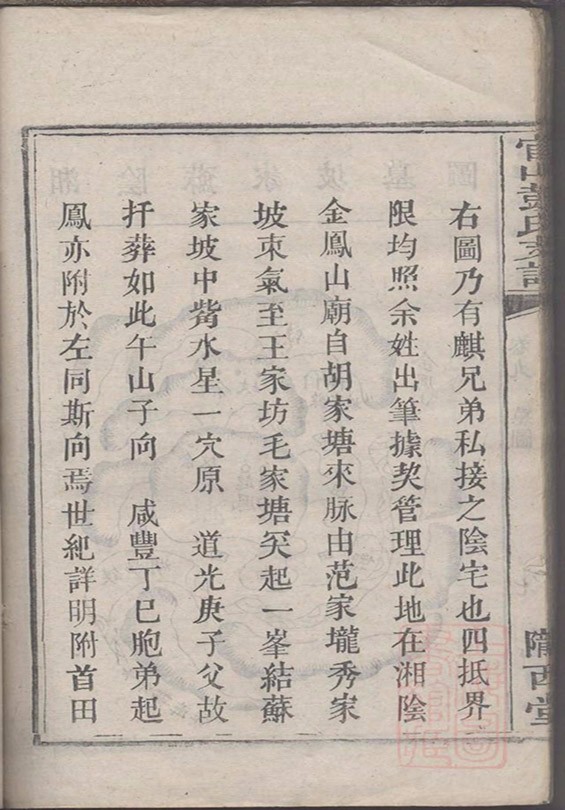 右圖乃有麒兄弟私接之陰宅也四抵界
限均照余姓出筆據契管理此地在湘陰
金鳳山廟自胡家塘來脉由范家壠秀家
坡束氣至王家坊毛家塘突起一峯結蘇
家坡中觜水星一穴原 道光庚子父故
扦葬如此午山子向 咸豐丁巳胞弟起
鳳亦附於左同斯向焉世紀詳明附首田
隴西堂